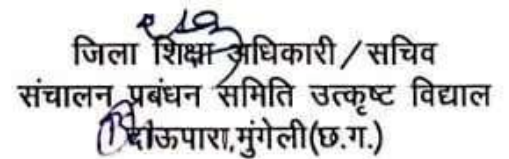 जिला शिक्षा अधिकारी/सचिव
संचालन प्रबंधन समिति उत्कृष्ट विद्याल
दाऊपारा,मुंगेली(छ.ग.)